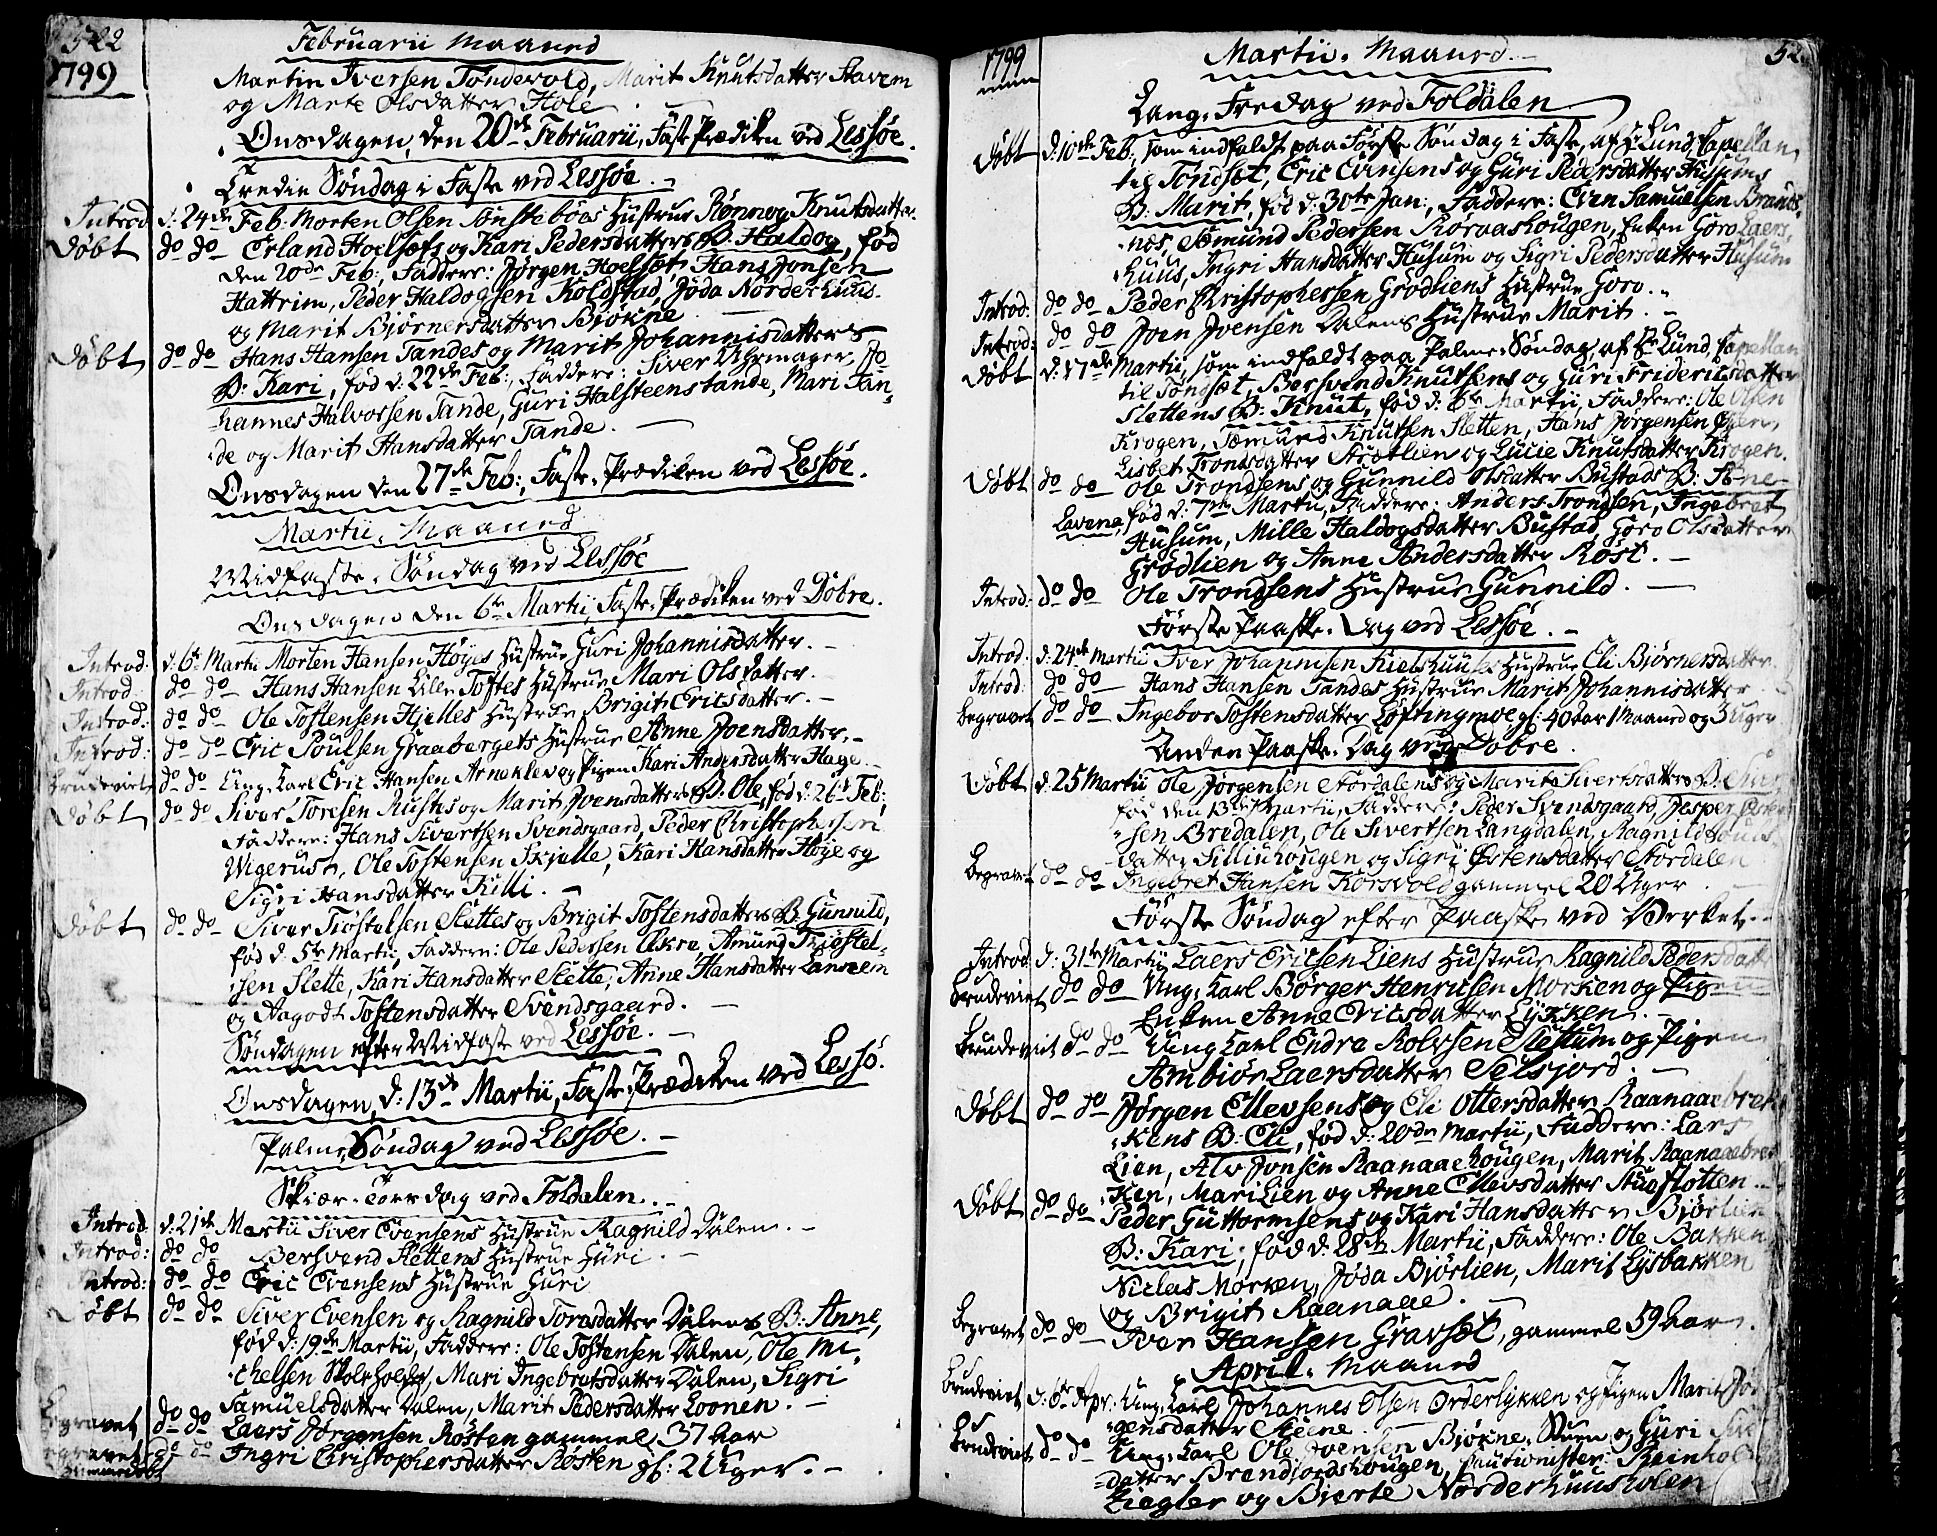 522
1799
Februarii Maaned
Martin Iversen Tøndevold, Marit Knutsdatter Stavem
og Marte Olsdatter Hole
Onsdagen den 20de Februarii, Faste Prædiken ved Lessøe.
Tredie Søndag i Faste ved Lessøe.
Introd d: 24de Feb: Morten Olsen Tønstebøes Hustrue Rønnog Knutsdatter.
Døbt do do Erland Hoelsets og Kari Pedersdatters B: Haldog, fød
den 20de Feb:, Faddere: Jørgen Hoelset, Hans Jonsen
Hattrim, Peder Haldogsen Koldstad, Jøda Norderhuus.
og Marit Bjørnersdatter Bjøkne
Døbt do do Hans Hansen Tandes og Marit Johannisdatters
B: Kari, fød d: 22de Feb:, Faddere: Siver Uhrmager, Jo
hannes Halvorsen Tande, Guri Halsteenstande, Mari Tan,
de og Marit Hansdatter Tande.
Onsdagen den 27de Feb:, Faste, Prædiken ved Lessøe.
Martii, Maaned
Midfaste, Søndag ved Lessøe
Onsdagen den 6te Martii, Faste, Prædiken ved Dobre.
Introd: d: 6te Martii Morten Hansen Høyes Hustrue Guri Johannisdatter.
Introd: do do Hans Hansen Lille Toftes Hustrue Mari Olsdatter.
Introd: do do Ole Tostensen Hjelles Hustrue Brigit Ericsdatter.
Introd: do do Eric Poulsen Graabergets Hustrue Anne Joensdatter.
Brudeviet do do Ung, Karl Eric Hansen Arneklev og Pigen Kari Andersdatter Hage.
Døbt do do Siver Toresen Rusths og Marit Joensdatters B: Ole, fød d: 26de Feb:,
Faddere: Hans Sivertsen Svendsgaard, Peder Christophersen
Wigerust, Ole Tostensen Skjelle, Kari Hansdatter Høje og
Sigri Hansdatter Killi.
Døbt do do Siver Trøstelsen Slettes og Brigit Tostensdatters B. Gunnild,
fød d: 5te Martii, Faddere: Ole Pedersen Akre, Amund Trøstel,
sen Slette, Kari Hansdatter Slette, Anne Hansdatter Lanseem
og Aagodt Tostensdatter Svendsgaard.
Søndagen efter Midfaste ved Lessøe.
Onsdagen, d: 13de Martii, Faste, Prædiken ved Lessø.
Palme Søndag ved Lessøe.
Skiær, Torsdag ved Foldalen.
Introd d: 21de Martii Siver Evensens Hustrue Ragnild Dalen.
Introd: do do Bersvend Slettens Hustrue Guri.
Introd: do do Eric Evensens Hustrue Guri
Døbt do do Siver Evensen og Ragnild Torasdatter Dalens B: Anne,
fød d: 19de Martii, Faddere: Ole Tostensen Dalen, Ole Mi,
chelsen Skoleholder, Mari Ingebretsdatter Dalen, Sigri
Samuelsdatter Dalen, Marit Pedersdatter Loonen.
Begravet do do Laers Jørgensen Røsten gammel 37 Aar
do do Ingri Christophersdatter Røsten gl: 2 Uger.
1799
52
Martii. Maaned.
Lang, Fredag ved Foldalen
Døbt d: 10de Feb:, som indfaldt paa Første Søndag i Faste, af Hr Lund, Capellan
til Tøndset, Eric Evensens og Guri Pedersdatter Husums
B: Marit, fød d: 30te Jan:, Faddere: Even Samuelsen Brænds,
nes, Sæmund Pedersen Rørvashougen, Enken Goro Laers,
huus, Ingri Hansdatter Husum og Sigri Pedersdatter Husum
Introd: do do Peder Christophersen Grødliens Hustrue Goro.
Introd: do do Joen Joensen Dalens Hustrue Marit.
Døbt d: 17de Martii, som indfaldt paa Palme, Søndag, af Hr Lund, Capellan
til Tøndset, Bersvend Knutsens og Guri Friderichsdatter
Slettens B: Knut, fød d: Martii, Faddere: Ole Olsen
Krogen, Sæmund Knutsen Sletten, Hans Jørgensen
Lisbet Trondsdatter Strætlien og Lucie Knutsdatter Krogen.
Døbt do do Ole Trondsens og Gunnild Olsdatter Bustads B: Ane
Lavene, fød d: 7de Martii, Faddere: Anders Trondsen, Ingebret
Husum, Mille Haldogsdatter Bustad, Goro Olsdatter
Grødlien og Anne Andersdatter Røst.
Introd: do do Ole Trondsens Hustrue Gunnild.
Første Paaske, Dag ved Lessøe.
Introd: d: 24de Martii Iver Johannisen Kielshuuses Hustrue Eli Bjørnersdatter.
Introd: do do Hans Hansen Tandes Hustrue Marit Johannisdatter
Begravet do do Ingebor Tostensdatter Løftingmoe gl: 40 Aar 1 Maaned og 3 Uger
Anden Paaske, Dag ved Dobre.
Døbt d: 25 Martii Ole Jørgensen Stordalens og Marite Sivertsdatters B: Siver,
fød den 13de Martii, Faddere: Peder Svendsgaard, Jesper
sen Bredalen, Ole Sivertsen Langdalen, Ragnild
datter Silliuhougen og Sigri Østensdatter Stordalen
Begravet do do Ingebret Hansen Korsvold gammel 20 Uger
Første Søndag efter Paaske ved Værket.
Introd d: 31te Martii Laers Ericsen Liens Hustrue Ragnild Pedersdatt
Brudeviet do do Ung, Karl Børger Henrichsen Morken og Pigen
Enken Anne Ericsdatter Lykken.
Brudeviet do do Ung Karl Endre Rolvsen Slettum og Pigen
Ambiør Laersdatter Selsjord.
Døbt do do Jørgen Ellevsens og Eli Ottersdatter Raanaaebræk
kens B: Eli, fød d: 20de Martii, Faddere: Lars
Lien, Alv Jonsen Raanaaehougen, Marit Raanaaebræ
ken, Mari Lien og Anne Ellevsdatter Stueflotten.
Døbt do do Peder Guttormsens og Kari Hansdatter Bjørlien
B: Kari, fød d: 28de Martii, Faddere: Ole Bakken
Niclas Morken, Jøda Bjørlien, Marit Lysbakken
og Brigit Raanaae.
Begravet do do Iver Hansen Gravset, gammel 59 Aar.
April. Maaned
Brudeviet d: 6te Apr: Ung, Karl Johannes Olsen Orderløkken og Pigen Marit Jør
gensdatter Steene.
Brudeviet do do Ung, Karl Ole Joensen Bjøkne, Stuen og Guri
datter Brendjordshougen, Cautionister: Reinhol
Ziegler og Bierte Norderhuusholen